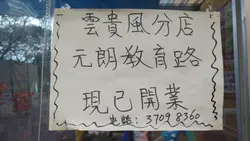 雲貴風分店
元朗教育路
現已開業
电話：3709 8360